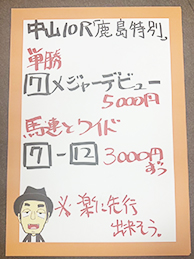 中山10R「鹿島特別」
単勝
7 メジャーデビュー
5000円
馬連とワイド
7-12 3000円
ずつ
※楽に先行
出来そう。